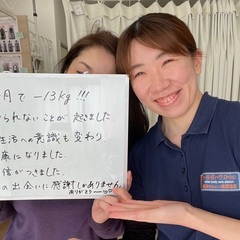 月で －13kg!!!
られないことが 起きました.
生活への意識も変わり
康になりました.
信がつきました.
の出会いに感謝しかありません
ありがとう